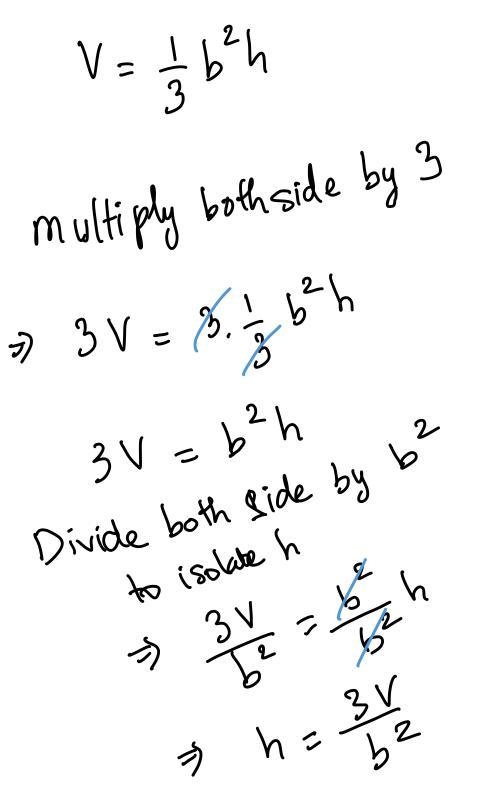 V = 1/3 b²h
multiply both side by 3
⇒ 3V = 3. 1/3 b²h
3V = b²h
Divide both side by b²
to isolate h
⇒ 3V/b² = b²/b² h
⇒ h = 3V/b²